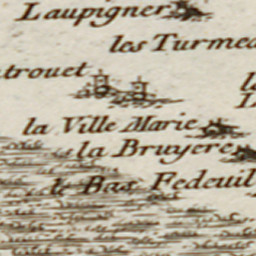 Laupigner
les Turmea
trouet
la Ville Marie
la Bruyere
le Bas Fedeuil